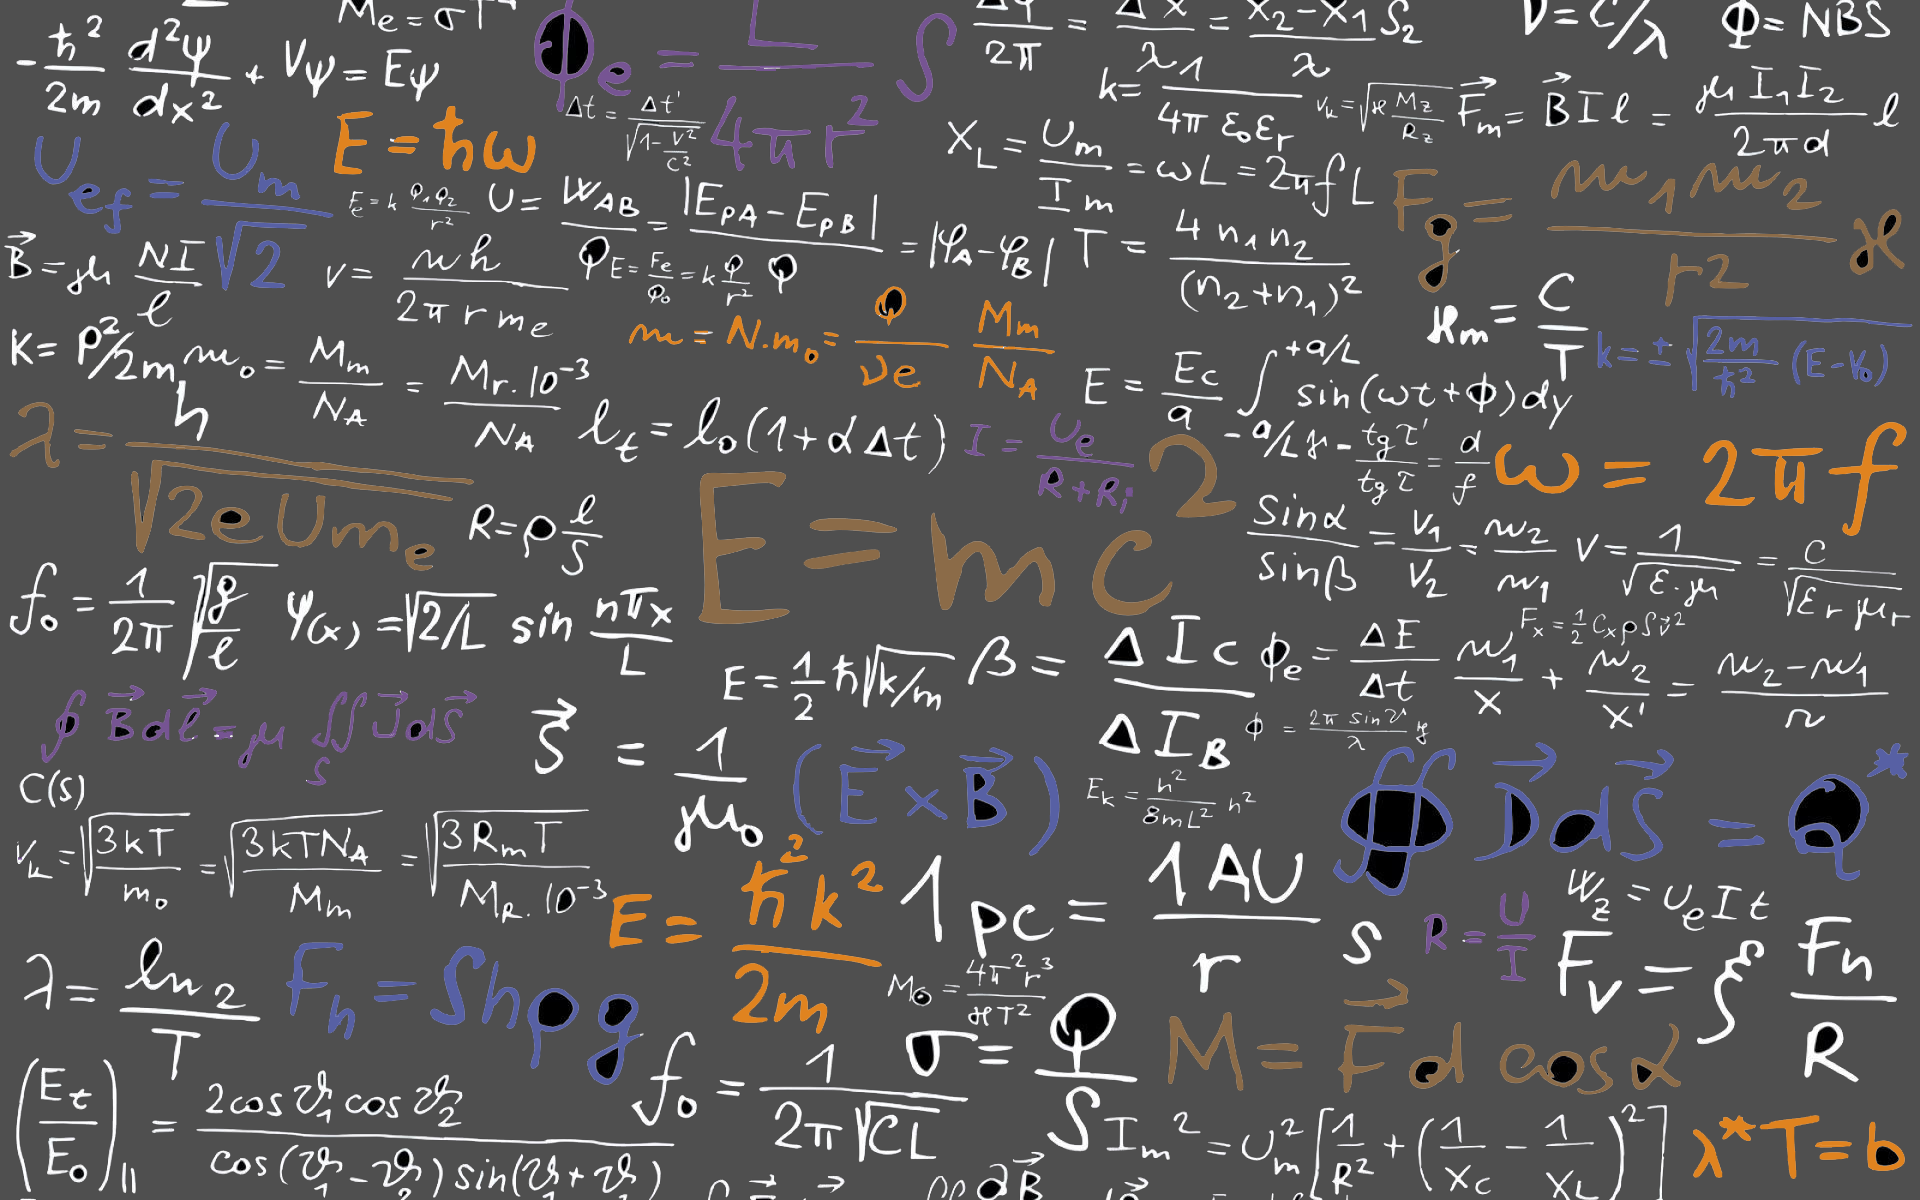 M_e = σT⁴
-ħ²/2m d²ψ/dx² + Vψ = Eψ
Φ_e = L/4πr² S
= Δx/λ = x₂-x₁/λ
ν = c/λ
Φ = NBS
Δt = Δt'/√(1-v²/c²)
k = 1/4π ε₀ε_r
v_k = √(ϰ M_z/R_z)
F⃗_m = B⃗ I l = μ I₁I₂/2πd l
U_ef = U_m/√2
E = ħω
F_e = k Q₁Q₂/r²
U = W_AB/Q = |E_pA - E_pB|/Q = |φ_A - φ_B|
X_L = U_m/I_m = ωL = 2πfL
F_g = m₁m₂/r² ϰ
B⃗ = μ NI/l
v = nh/2πrm_e
E = F_e/Q₀ = k Q/r²
T = 4n₁n₂/(n₂+n₁)²
K = p²/2m
m₀ = M_m/N_A = M_r.10⁻³/N_A
m = N.m₀ = Q/νe M_m/N_A
ϰ_m = C/T
k = ± √(2m/ħ² (E-V₀))
E = E_c/a ∫ +a/L -a/L sin(ωt+ϕ)dy
λ = h/√(2eUm_e)
l_t = l₀(1+αΔt)
I = U_e/R+R_i
tgτ'/tgτ = d/f
ω = 2πf
R = ρ l/S
E = mc²
sinα/sinβ = v₁/v₂ = n₂/n₁
v = 1/√(ε.μ) = c/√(ε_r μ_r)
f₀ = 1/2π √(g/l)
ψ(x) = √(2/L) sin nπx/L
F_x = 1/2 C_xρSv⃗²
E = 1/2 ħ√(k/m)
β = ΔI_C/ΔI_B
ϕ_e = ΔE/Δt
n₁/x + n₂/x' = n₂-n₁/r
∮ B⃗dl⃗ = μ ∬_S J⃗dS⃗
S⃗ = 1/μ₀ (E⃗ × B⃗)
ϕ = 2π sinϑ/λ y
E_k = h²/8mL² n²
∯ D⃗dS⃗ = Q*
C(S)
v_k = √(3kT/m₀) = √(3kTN_A/M_m) = √(3R_mT/M_R.10⁻³)
E = ħ²k²/2m
1pc = 1AU/r
s
R = U/I
W_z = U_e I t
F_v = ξ F_n/R
λ = ln2/T
F_h = Shρg
M₀ = 4π²r³/ϰT²
σ = Q/S
M = F⃗ d cosα
(E_t/E₀)_∥ = 2cosϑ₁cosϑ₂/cos(ϑ₁-ϑ₂)sin(ϑ₁+ϑ₂)
f₀ = 1/2π√(CL)
I_m² = U_m² [1/R² + (1/X_C - 1/X_L)²]
λ*T = b